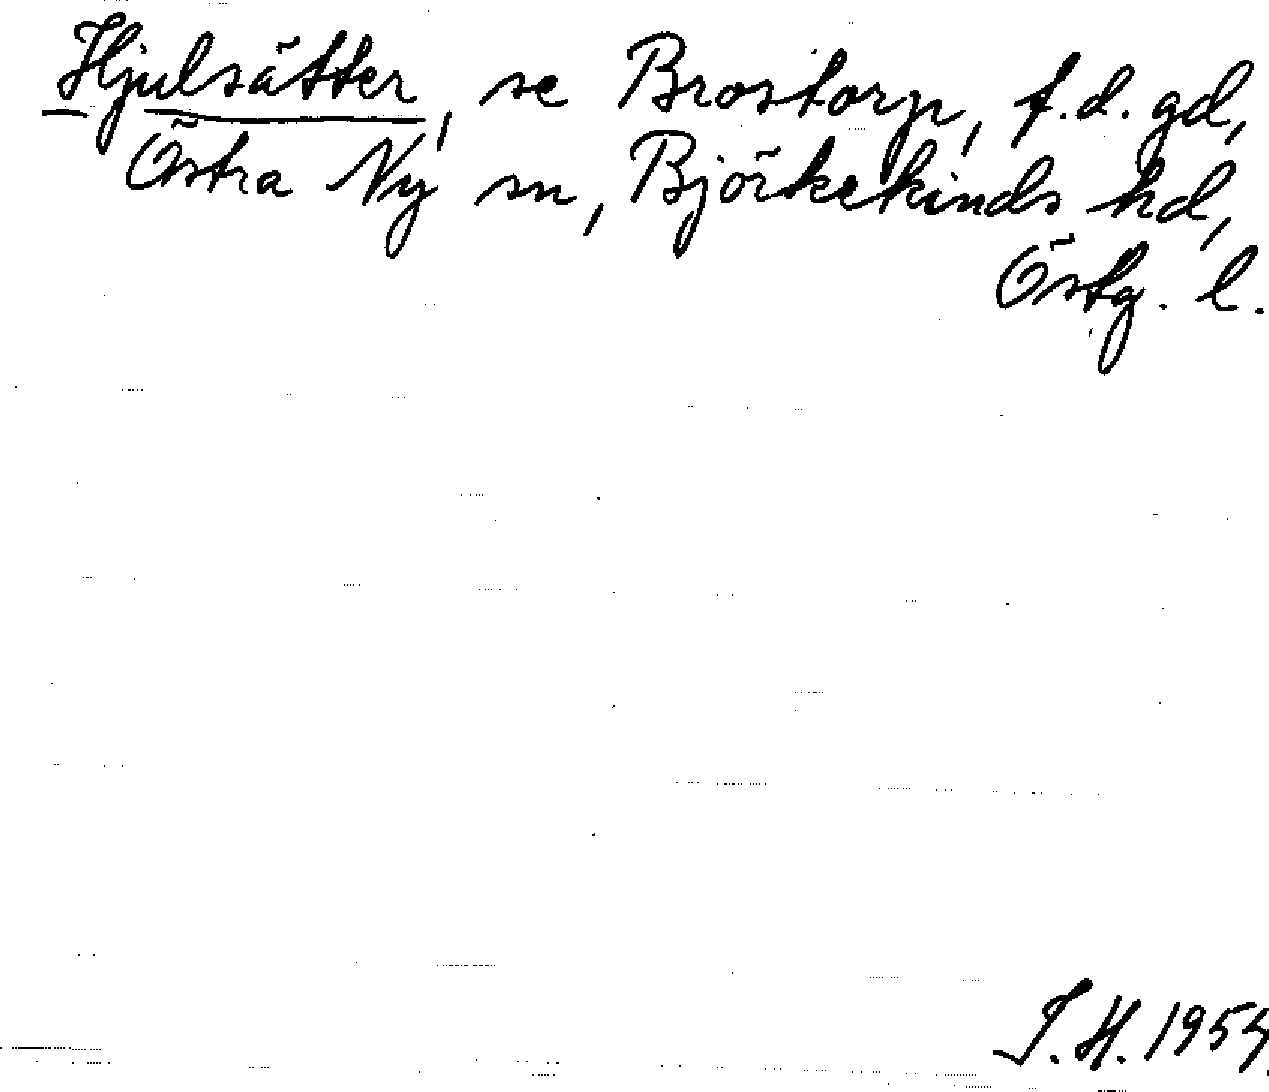 Hjulsätter, se Brostorp, f.d. gd,
Östra Ny sn, Björkekinds hd,
Östg. l.